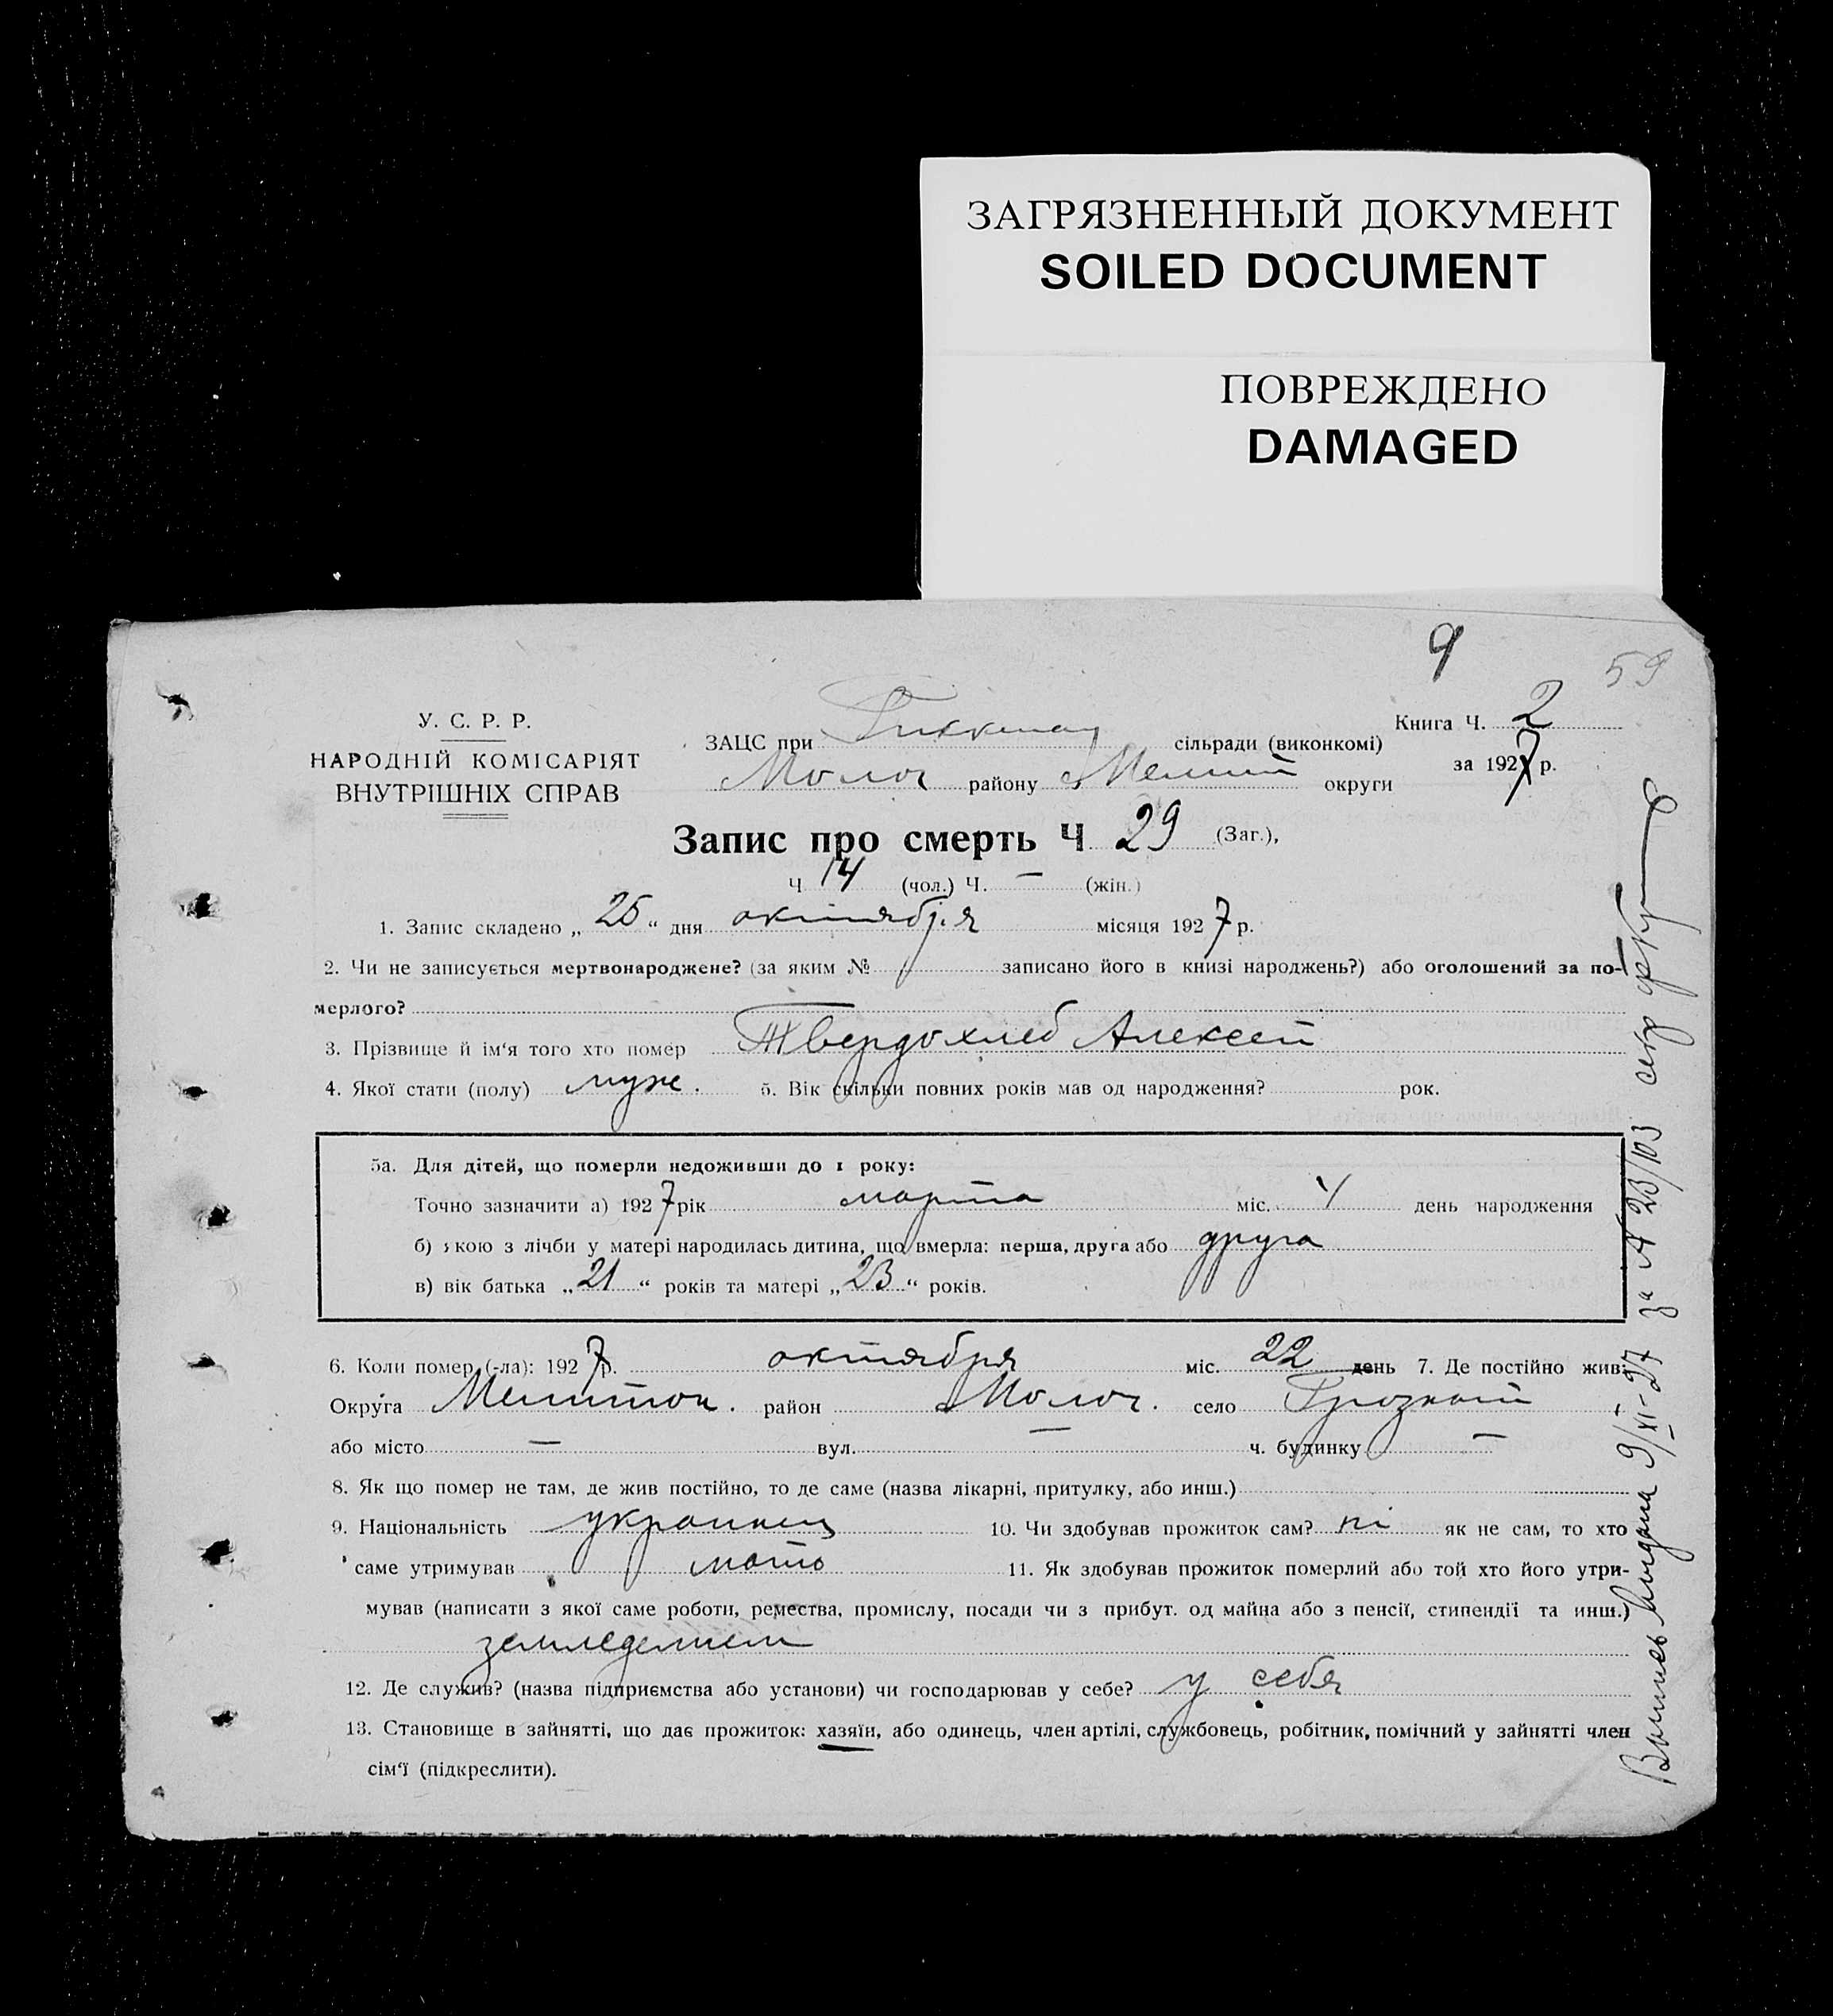 ЗАГРЯЗНЕННЫЙ ДОКУМЕНТ
SOILED DOCUMENT
ПОВРЕЖДЕНО
DAMAGED
9
59
У. С. Р. Р.
НАРОДНІЙ КОМІСАРІЯТ
ВНУТРІШНІХ СПРАВ
ЗАЦС при сільради (виконкомі)
Молоч району Мелит округи
Книга Ч. 2
за 1927 р.
Запис про смерть Ч 29 (Заг.),
Ч 14 (чол.) Ч. — (жін.)
1. Запис складено „ 25 “ дня октября місяця 1927 р.
2. Чи не записується мертвонароджене? (за яким № записано його в книзі народжень?) або оголошений за по-
мерлого?
3. Прізвище й ім‘я того хто помер Твердохлеб Алексей
4. Якої стати (полу) муж. 5. Вік скільки повних років мав од народження? рок.
5а. Для дітей, що померли недоживши до 1 року:
Точно зазначити а) 1927 рік марта міс. 4 день народження
б) якою з лічби у матері народилась дитина, що вмерла: перша, друга або друга
в) вік батька „21“ років та матері „23“ років.
6. Коли помер (-ла): 1927 р. октября міс. 22 день 7. Де постійно жив:
Округа Мелитоп. район Молоч. село Грозной
або місто — вул. — ч. будинку —
8. Як що помер не там, де жив постійно, то де саме (назва лікарні, притулку, або инш.)
9. Національність украинец 10. Чи здобував прожиток сам? ні як не сам, то хто
саме утримував мать 11. Як здобував прожиток померлий або той хто його утри-
мував (написати з якої саме роботи, ремества, промислу, посади чи з прибут. од майна або з пенсії, стипендії та инш.)
земледелием
12. Де служив? (назва підприємства або установи) чи господарював у себе? у себя
13. Становище в зайнятті, що дає прожиток: хазяїн, або одинець, член артілі, службовець, робітник, помічний у зайнятті член
сім‘ї (підкреслити).
Выпись выдана 9/XI-27 за № 23/103 секр